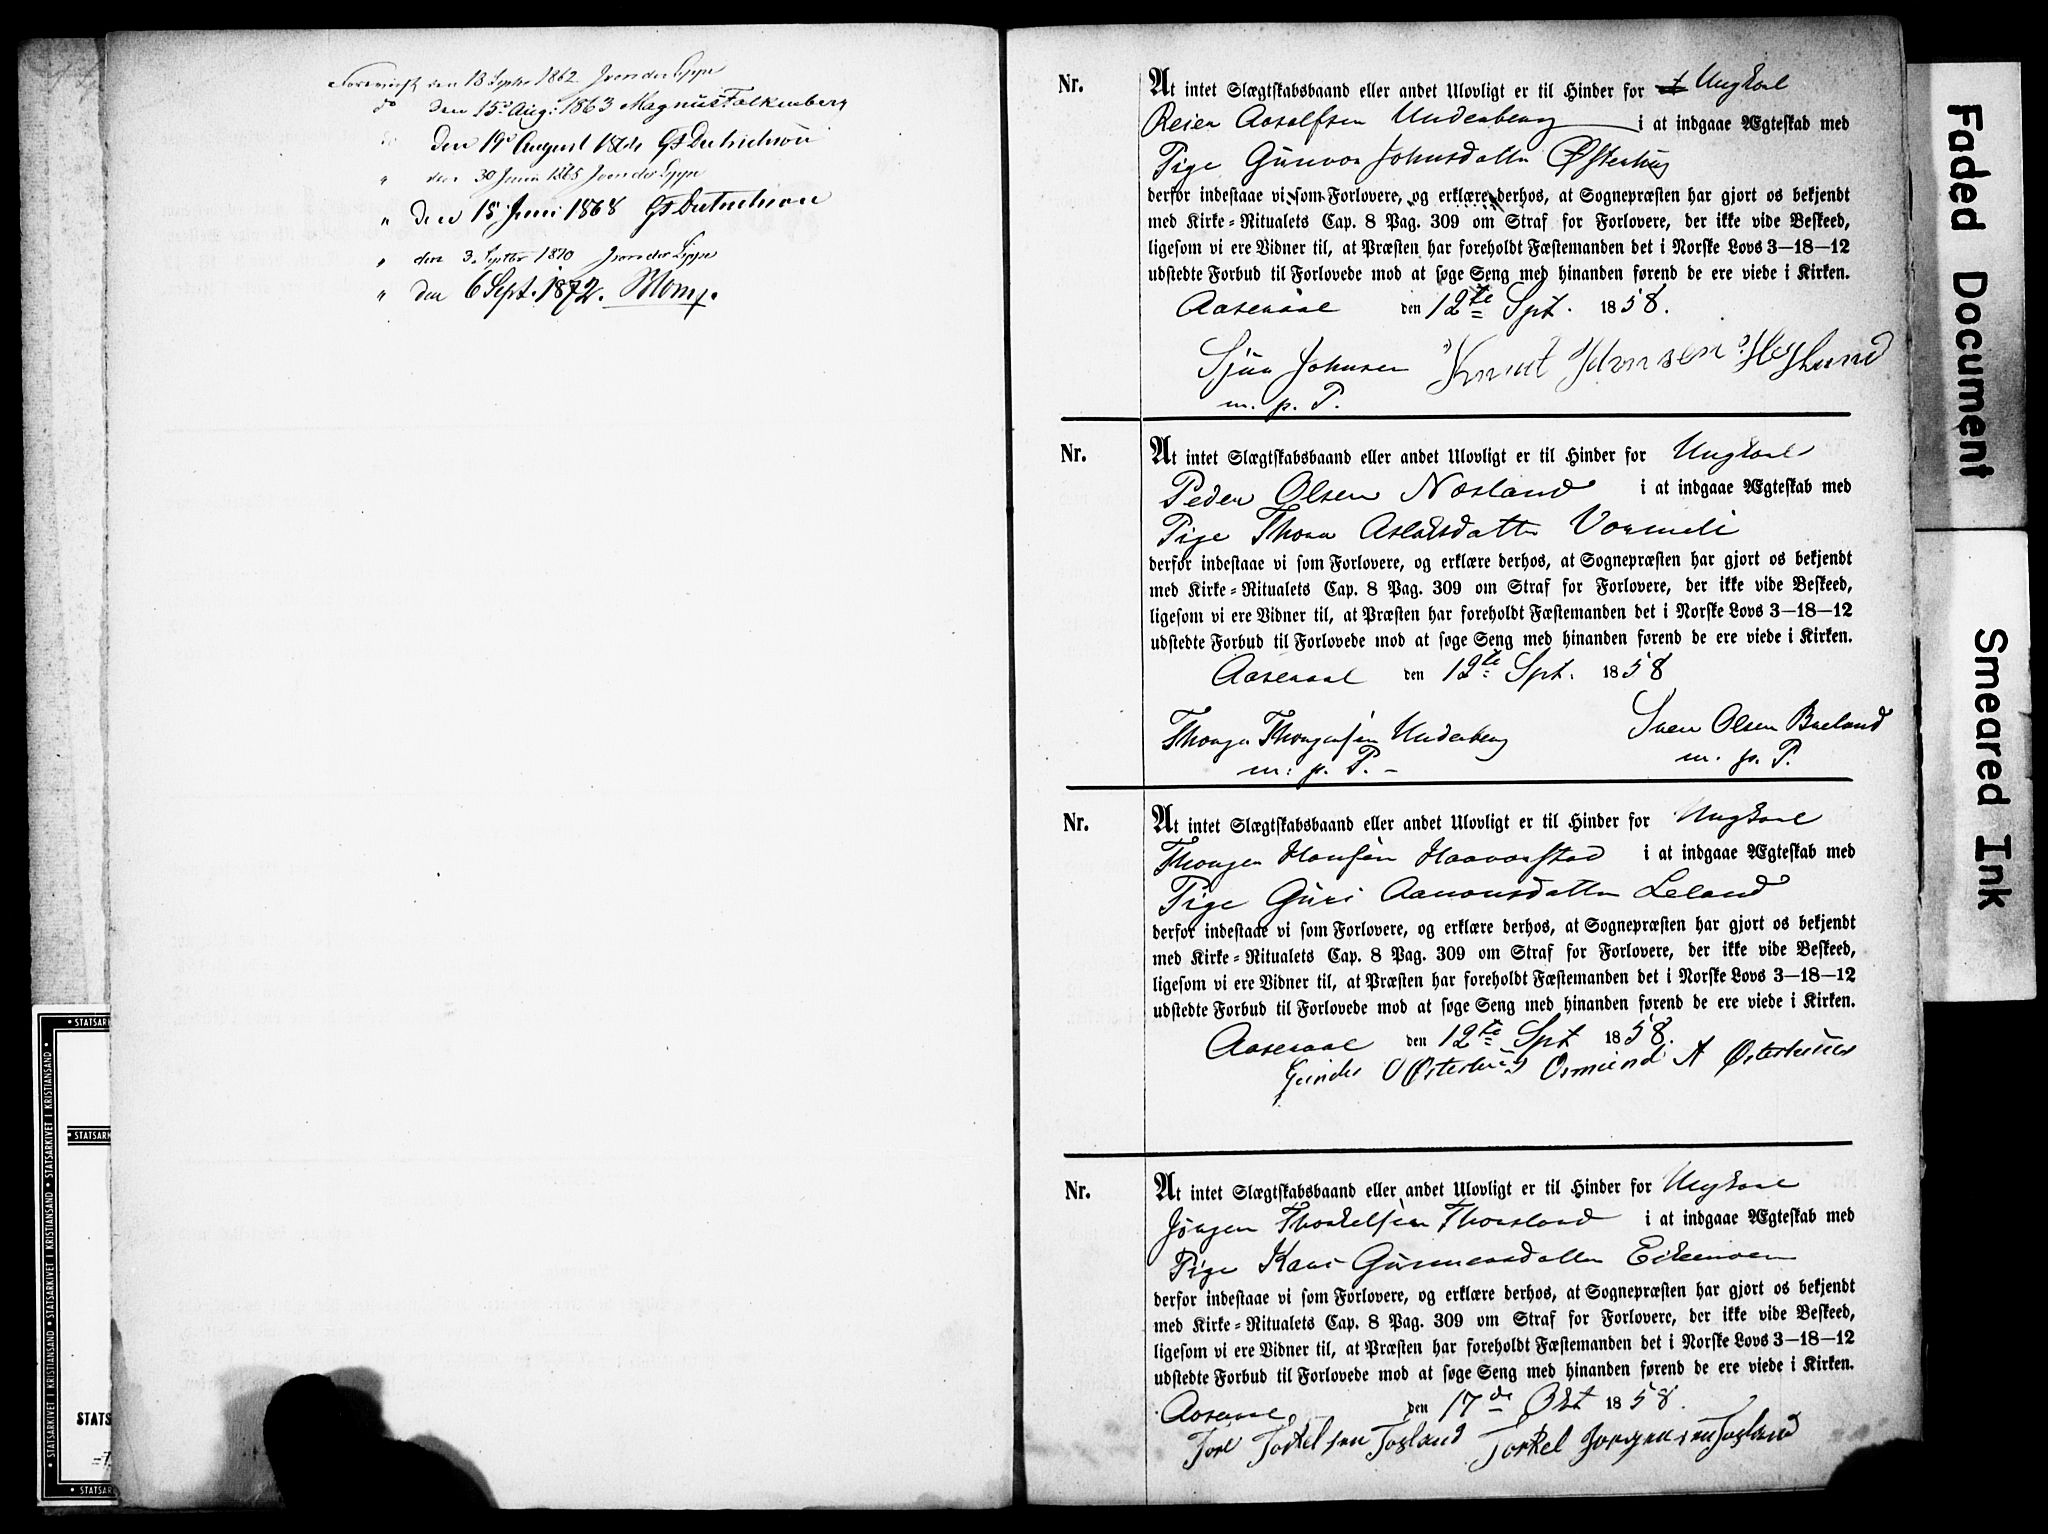 Foreviist den 18 Septbr 1862 J von der Lippe
do den 15de Aug: 1863 Magnus Falkenberg
den 19de August
" den 30 Juni 1865 J von der Lippe
" den 15 Juni 1868
" den 3. Septbr 1870 J von der Lippe
" den 6 Sept. 1872.
Nr. At intet Slægtskabsbaand eller andet Ulovligt er til Hinder for Ungkarl
Reier Aasulfsen Underberg i at indgaae Ægteskab med
Pige Gunvor Johnsdatter Østerhus
derfor indestaae vi som Forlovere, og erklære derhos, at Sognepræsten har gjort os bekjendt
med Kirke-Ritualets Cap. 8 Pag. 309 om Straf for Forlovere, der ikke vide Beskeed,
ligesom vi ere Vidner til, at Præsten har foreholdt Fæstemanden det i Norske Lovs 3—18—12
udstedte Forbud til Forlovede mod at søge Seng med hinanden førend de ere viede i Kirken.
Aaseraal den 12te Spt. 1858.
Johnsen Knud
m. p. P.
Nr. At intet Slægtskabsbaand eller andet Ulovligt er til Hinder for Ungkarl
Peder Olsen Næsland i at indgaae Ægteskab med
Pige Thora Aslaksdatter Vormeli
derfor indestaae vi som Forlovere, og erklære derhos, at Sognepræsten har gjort os bekjendt
med Kirke-Ritualets Cap. 8 Pag. 309 om Straf for Forlovere, der ikke vide Beskeed,
ligesom vi ere Vidner til, at Præsten har foreholdt Fæstemanden det i Norske Lovs 3—18—12
udstedte Forbud til Forlovede mod at søge Seng med hinanden førend de ere viede i Kirken.
Aaseraal den 12te Spt. 1858
Thorger Thorgersen Underberg Sven Olsen Breland
m: p. P. — m. p. P.
Nr. At intet Slægtskabsbaand eller andet Ulovligt er til Hinder for Ungkarl
Thorger Hansen Haaverstad i at indgaae Ægteskab med
Pige Guri Aanonsdatter Leland
derfor indestaae vi som Forlovere, og erklære derhos, at Sognepræsten har gjort os bekjendt
med Kirke-Ritualets Cap. 8 Pag. 309 om Straf for Forlovere, der ikke vide Beskeed,
ligesom vi ere Vidner til, at Præsten har foreholdt Fæstemanden det i Norske Lovs 3—18—12
udstedte Forbud til Forlovede mod at søge Seng med hinanden førend de ere viede i Kirken.
Aaseraal den 12te Spt 1858.
O Østerhus Osmund A Østerhus
Nr. At intet Slægtskabsbaand eller andet Ulovligt er til Hinder for Ungkarl
Jørgen Thorkelsen Thorsland i at indgaae Ægteskab med
Pige Kari Gunnersdatter Eikenoen
derfor indestaae vi som Forlovere, og erklære derhos, at Sognepræsten har gjort os bekjendt
med Kirke-Ritualets Cap. 8 Pag. 309 om Straf for Forlovere, der ikke vide Beskeed,
ligesom vi ere Vidner til, at Præsten har foreholdt Fæstemanden det i Norske Lovs 3—18—12
udstedte Forbud til Forlovede mod at søge Seng med hinanden førend de ere viede i Kirken.
Aaseraal den 17de Okt 1858.
Torkelsen Tosland Torkel Jorgensen Tosland
Faded Document
Smeared Ink
STATSARKIVET I KRISTIANSAND